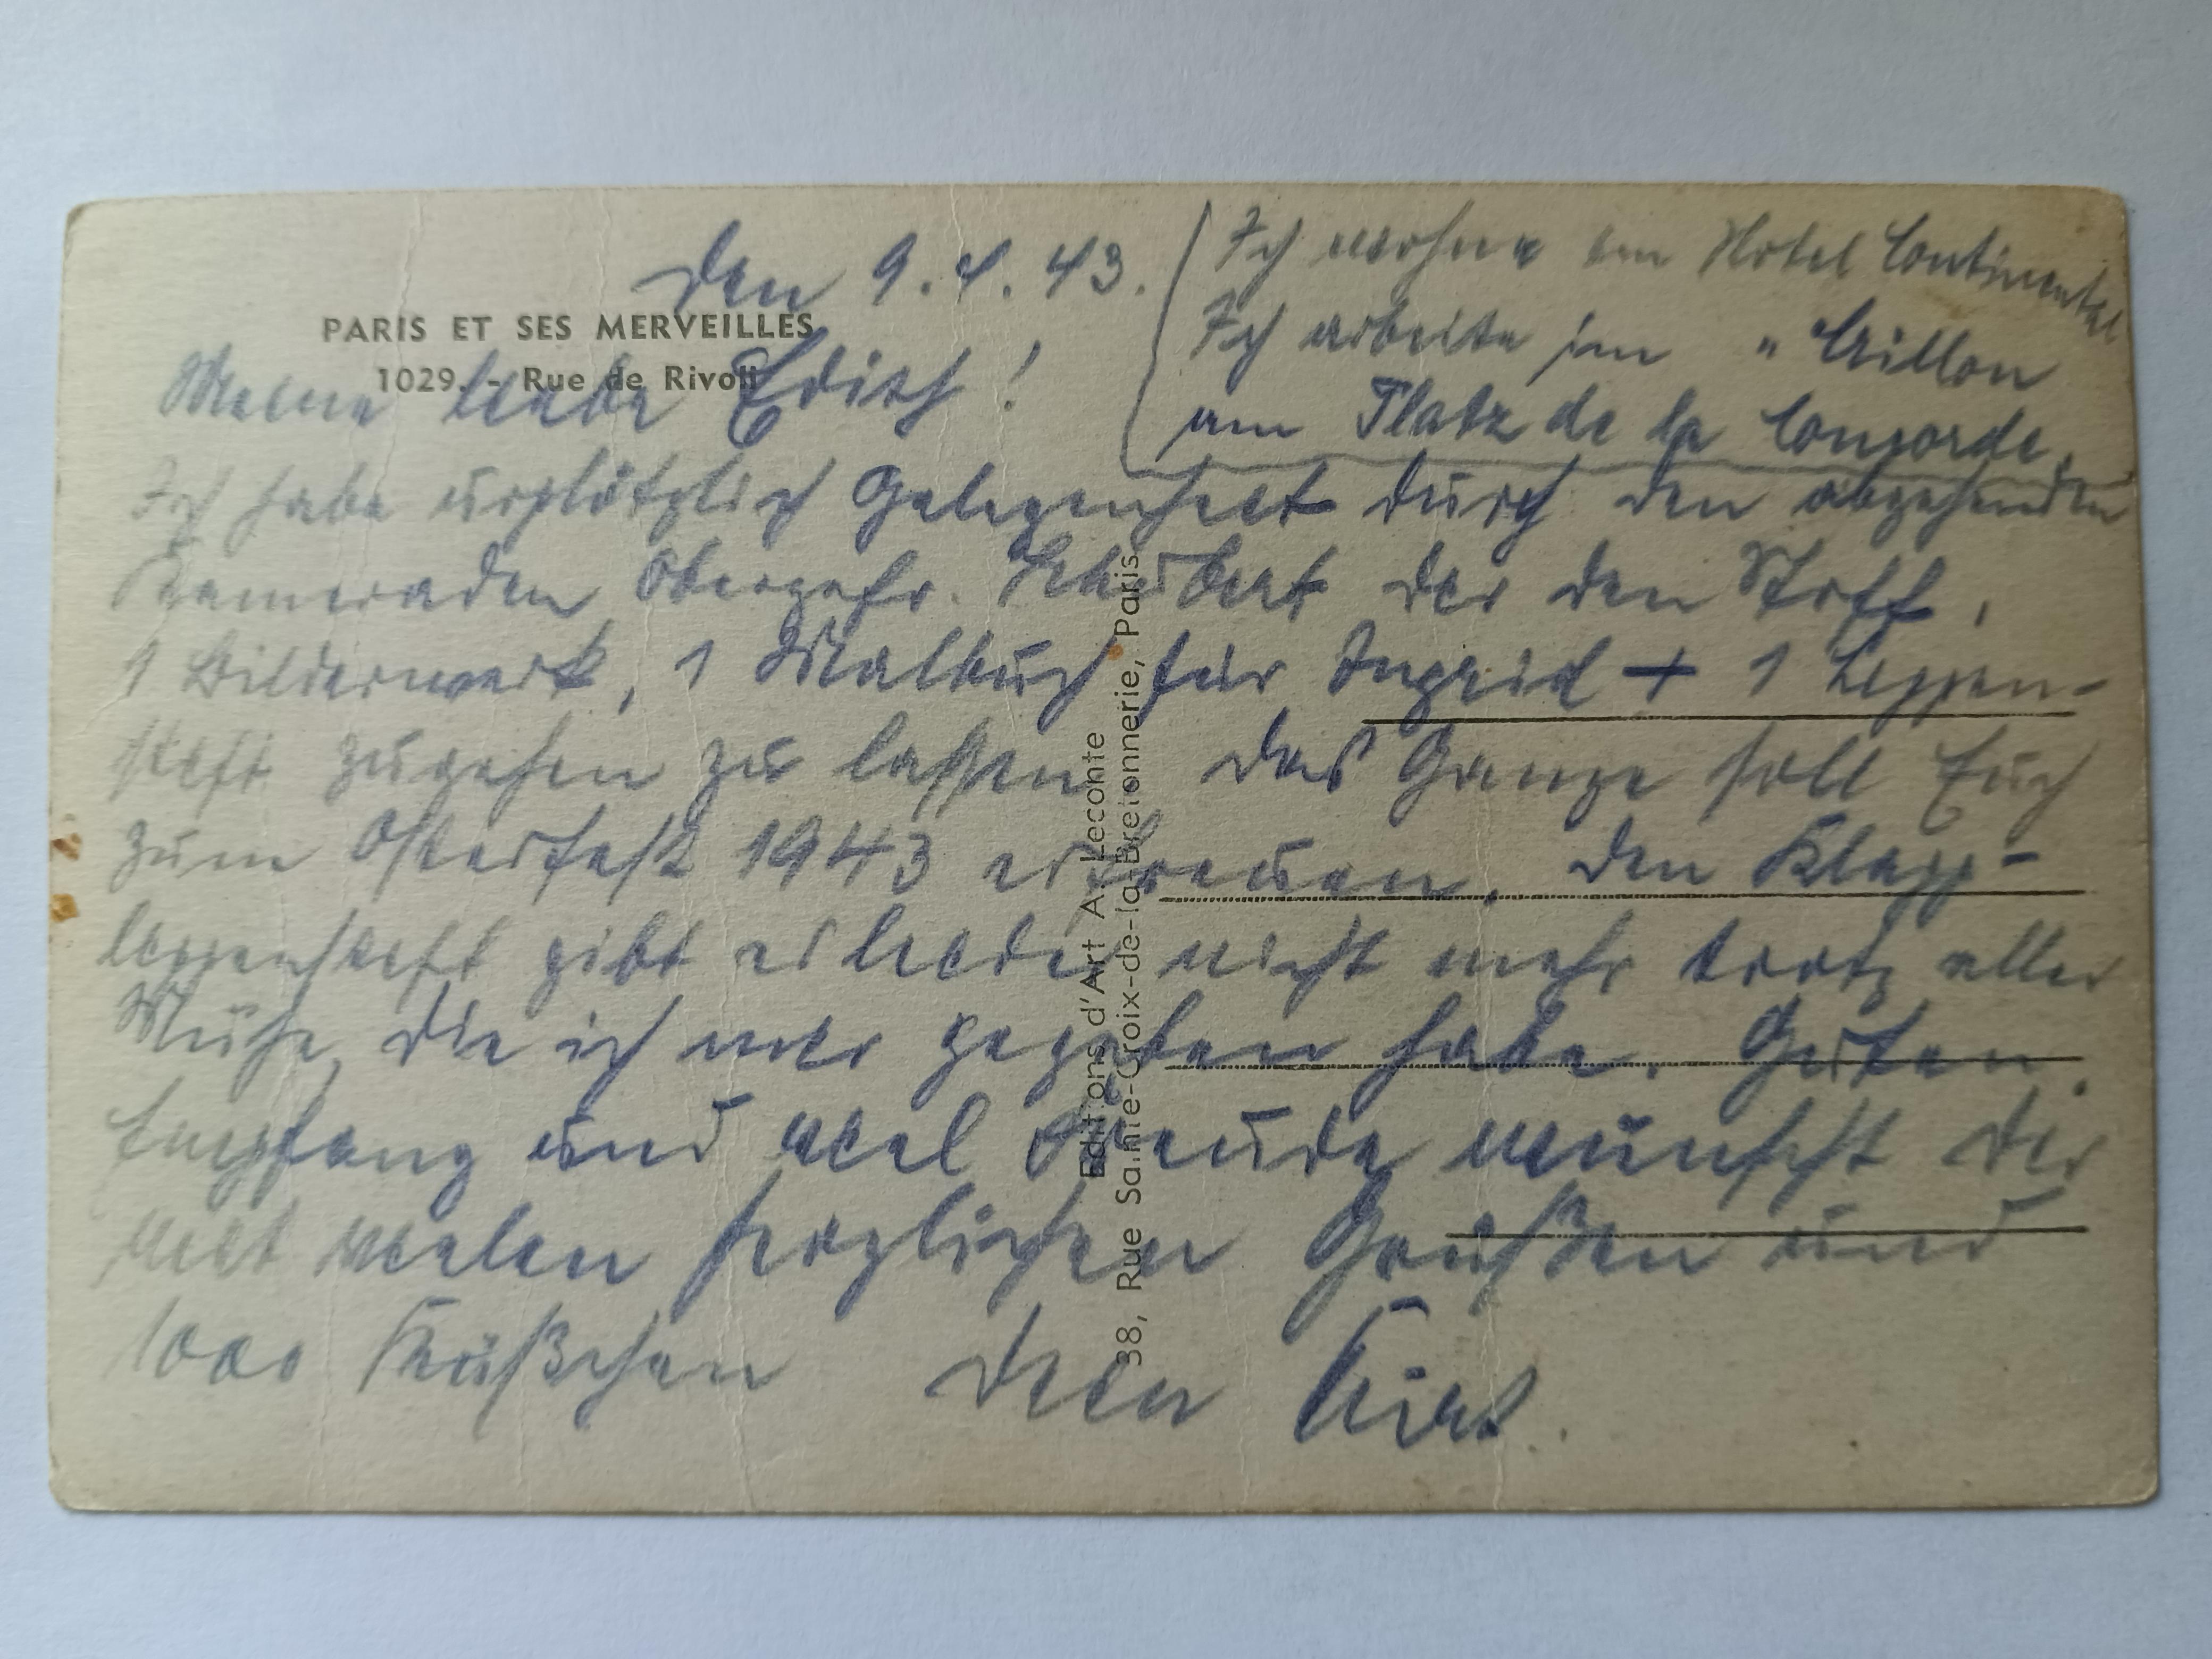 den 9.4.43.
PARIS ET SES MERVEILLES
1029. - Rue de Rivoli
Meine liebe Edith!
Ich wohne im Hotel Continental
Ich arbeite im "Crillon
am Platz de la Concorde.
Ich habe urplötzlich Gelegenheit durch den abgehenden
Kameraden Obergefr. Schubert der den Stoff,
1 Bilderwerk, 1 Malbuch für Ingrid + 1 Lippen-
stift zugehen zu lassen das Ganze soll Euch
zum Osterfest 1943 erfreuen. Den Klapp-
lippenstift gibt es leider nicht mehr trotz aller
Mühe, die ich mir gegeben habe. Guten
Empfang und viel Freude wünscht Dir
mit vielen herzlichen Grüßen und
1000 Küßchen Dein Kurt.
Editions d'Art A. Leconte
38, Rue Sainte-Croix-de-la-Bretonnerie, Paris